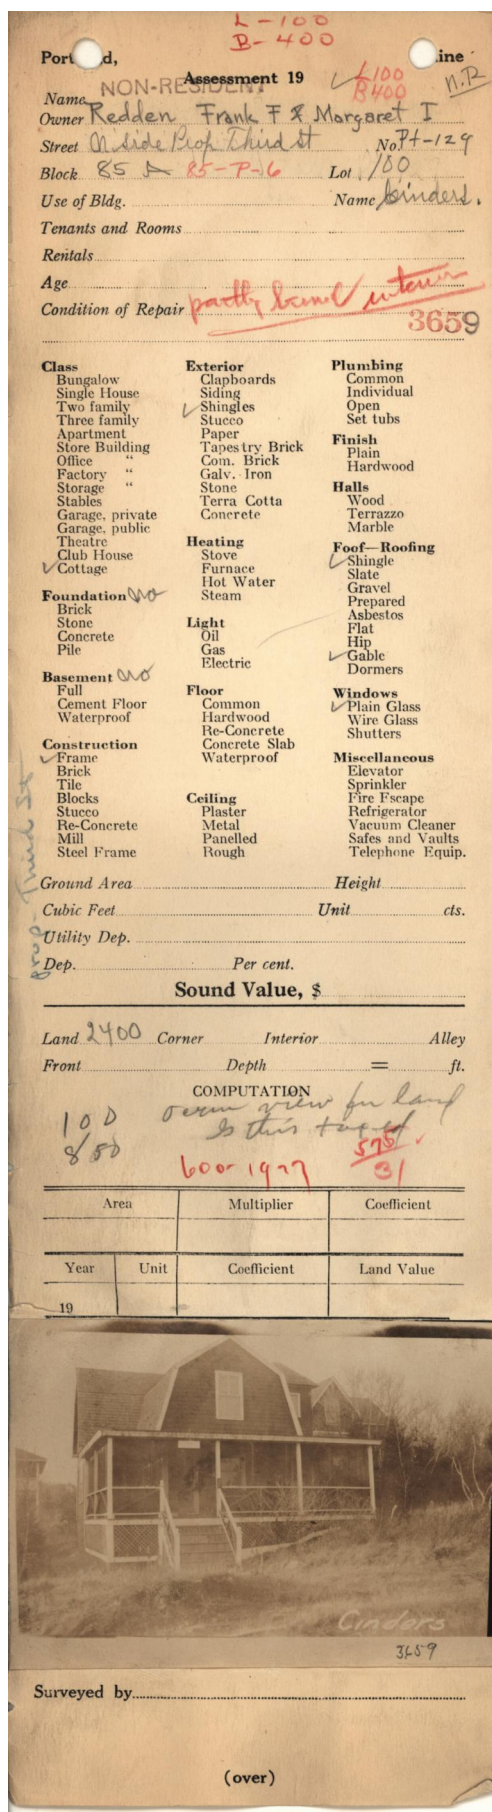 L-100
B-400
Portland, Maine
NON-RESIDENT
Assessment 19
L100
B400
N.R
Name
Owner Redden Frank F & Margaret I
Street N Side Prop Third St No. Pt-129
Block 85 A 85-P-6 Lot 100
Use of Bldg. Name Cinders.
Tenants and Rooms
Rentals
Age
Condition of Repair partly burned interior
3659
Class
Bungalow
Single House
Two family
Three family
Apartment
Store Building
Office "
Factory "
Storage "
Stables
Garage, private
Garage, public
Theatre
Club House
✓ Cottage
Foundation No
Brick
Stone
Concrete
Pile
Basement No
Full
Cement Floor
Waterproof
Construction
✓ Frame
Brick
Tile
Blocks
Stucco
Re-Concrete
Mill
Steel Frame
Exterior
Clapboards
Siding
✓ Shingles
Stucco
Paper
Tapestry Brick
Com. Brick
Galv. Iron
Stone
Terra Cotta
Concrete
Heating
Stove
Furnace
Hot Water
Steam
Light
Oil
Gas
Electric
Floor
Common
Hardwood
Re-Concrete
Concrete Slab
Waterproof
Ceiling
Plaster
Metal
Panelled
Rough
Plumbing
Common
Individual
Open
Set tubs
Finish
Plain
Hardwood
Halls
Wood
Terrazzo
Marble
Foof—Roofing
✓ Shingle
Slate
Gravel
Prepared
Asbestos
Flat
Hip
✓ Gable
Dormers
Windows
✓ Plain Glass
Wire Glass
Shutters
Miscellaneous
Elevator
Sprinkler
Fire Escape
Refrigerator
Vacuum Cleaner
Safes and Vaults
Telephone Equip.
Prop. Third St
Ground Area Height
Cubic Feet Unit cts.
Utility Dep.
Dep. Per cent.
Sound Value, $
Land 2400 Corner Interior Alley
Front Depth = ft.
COMPUTATION
100 view for land
8/50 Is this taxed
600-1927 575
31
Area Multiplier Coefficient
Year Unit Coefficient Land Value
19
Cinders
3659
Surveyed by
(over)